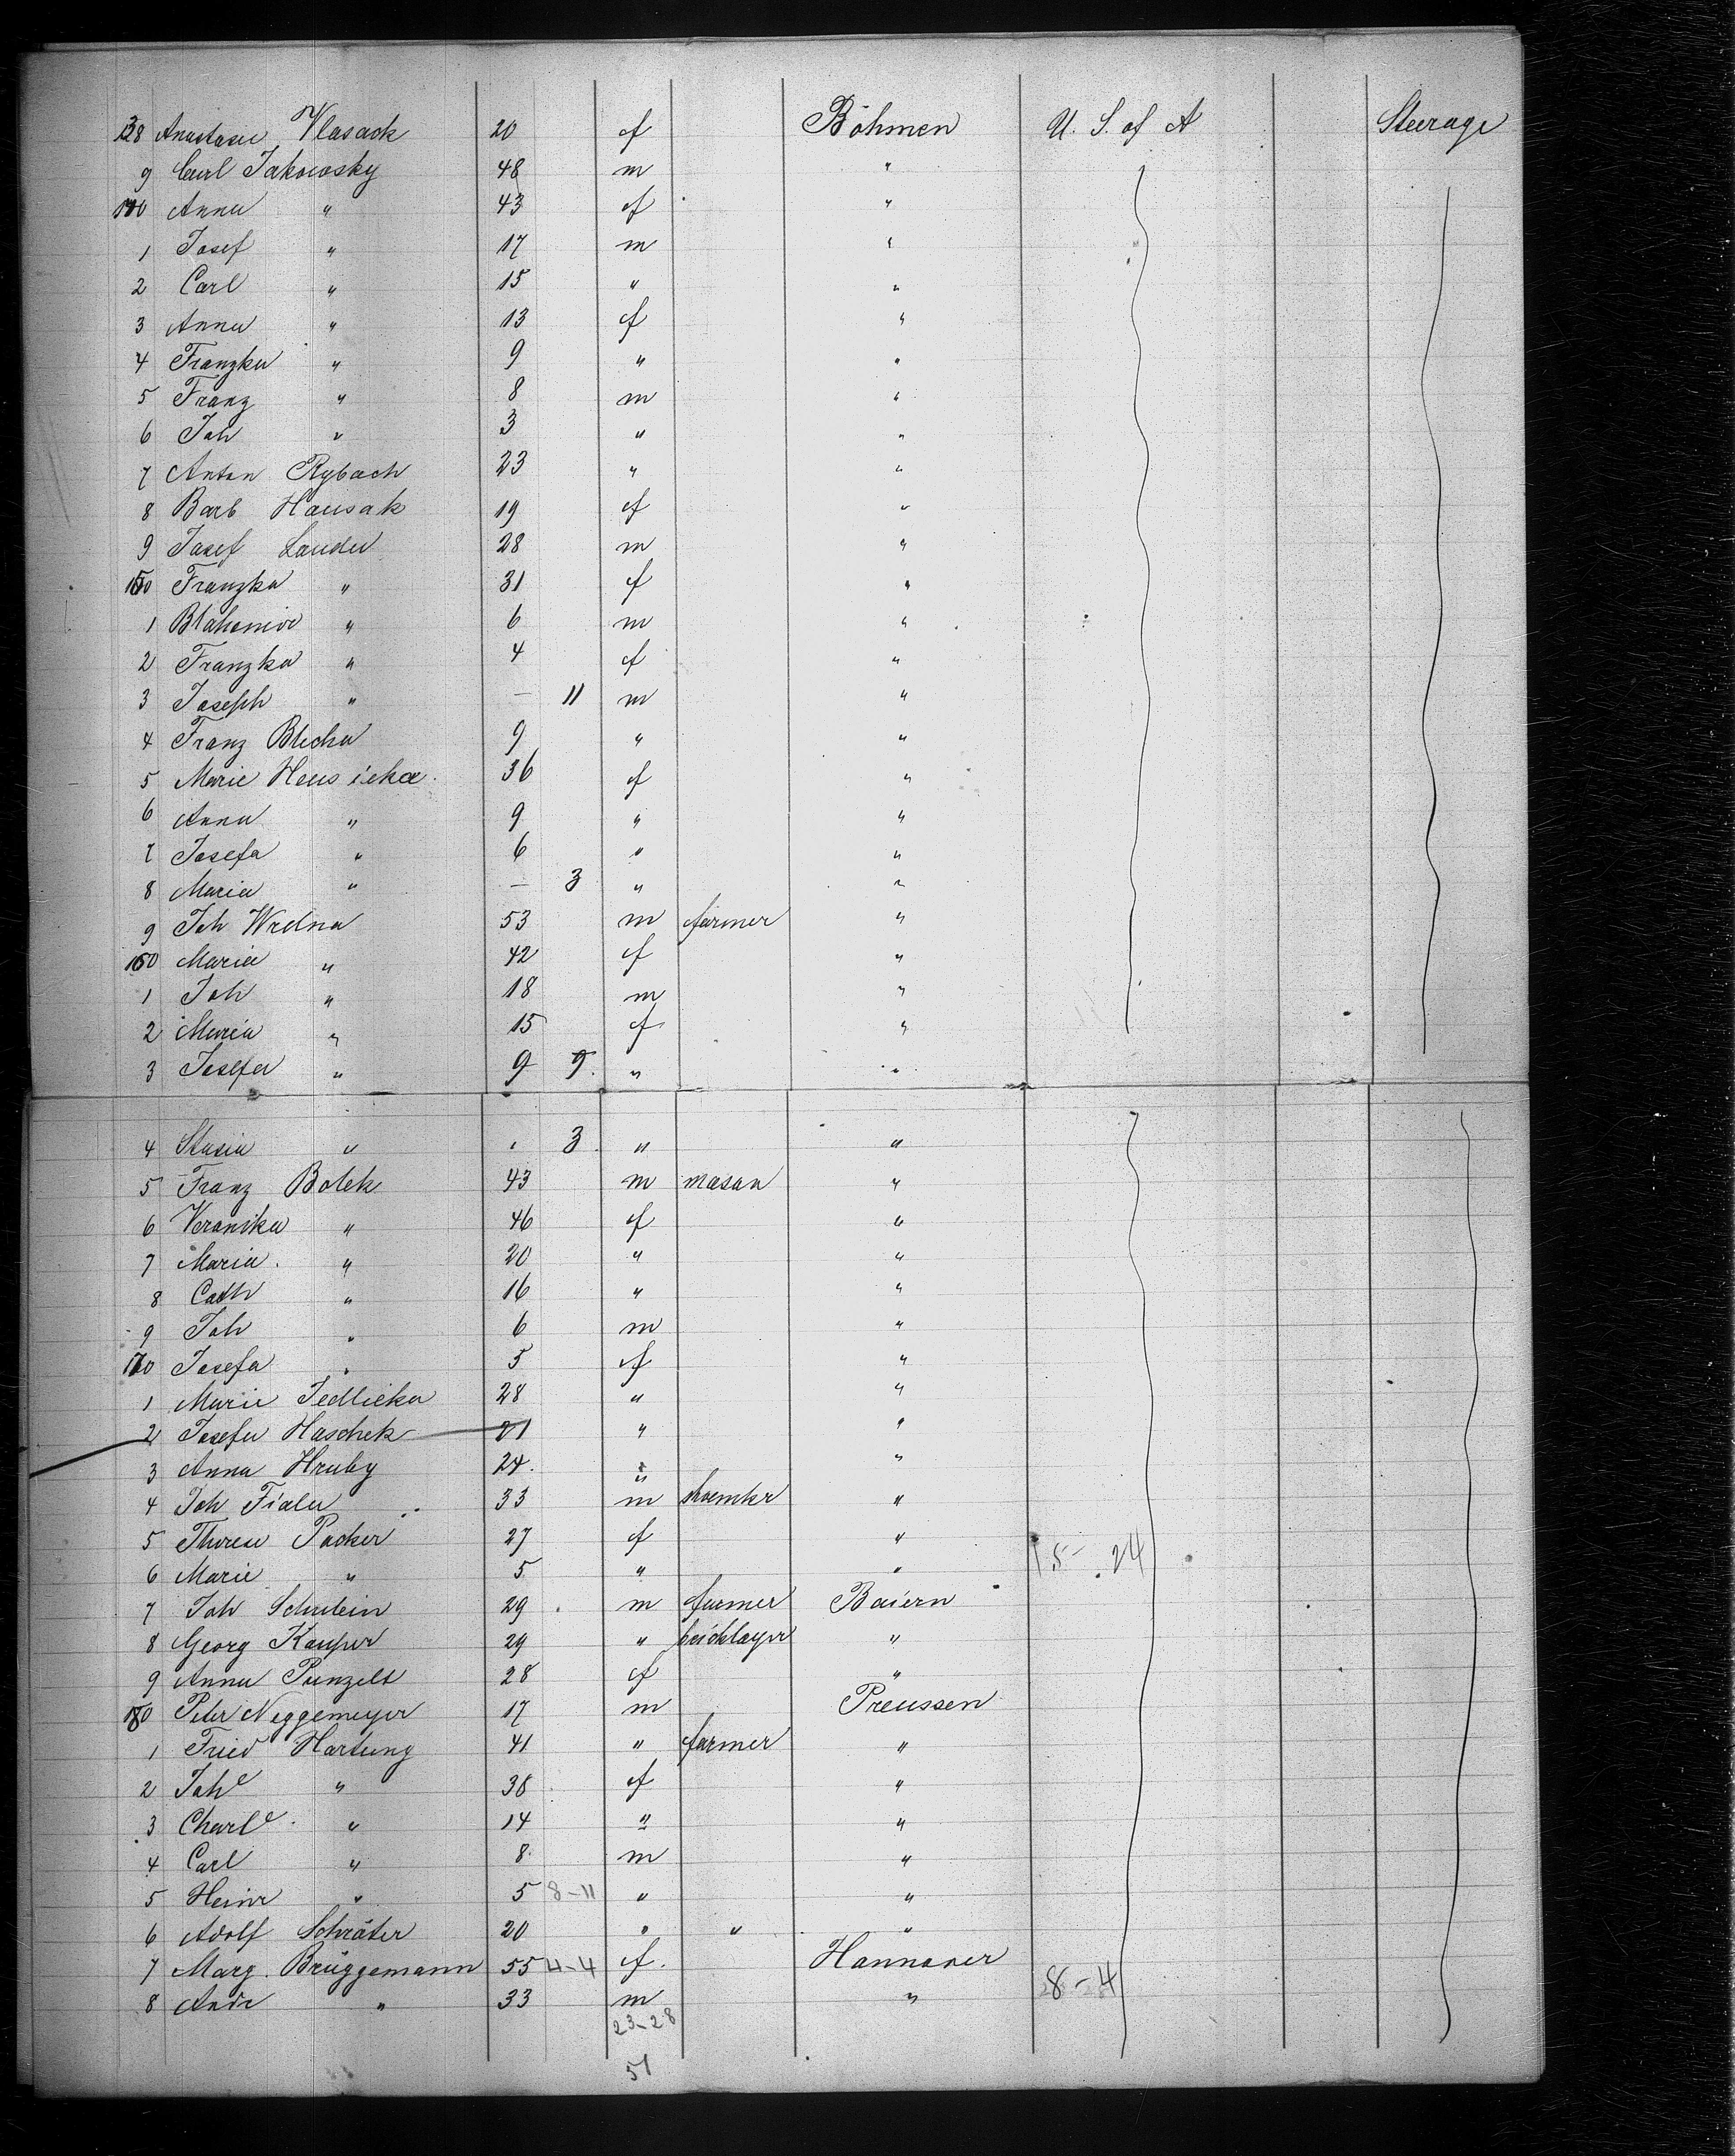 138 Anastasie Vlasack 20 f Böhmen U. S. of A Steerage
9 Carl Jakowsky 48 m "
140 Anna " 43 f "
1 Josef " 17 m "
2 Carl " 15 " "
3 Anna " 13 f "
4 Franzka " 9 " "
5 Franz " 8 m "
6 Joh " 3 " "
7 Anton Rybach 23 " "
8 Barb Hausak 19 f "
9 Josef Landa 28 m "
150 Franzka " 31 f "
1 Blahomir " 6 m "
2 Franzka " 4 f "
3 Joseph " — 11 m "
4 Franz Blecha 9 " "
5 Marie 36 f "
6 Anna " 9 " "
7 Josefa " 6 " "
8 Maria " — 3 " "
9 Joh Wrdna 53 m farmer "
160 Maria " 42 f "
1 Joh " 18 m "
2 Maria " 15 f "
3 Josefa " 9 9. " "
4 Stasia " " 3 " "
5 Franz Bolek 43 m mason "
6 Veronika " 46 f "
7 Maria " 20 " "
8 Cath " 16 " "
9 Joh " 6 m "
170 Josefa " 5 f "
1 Marie Jedlicka 28 " "
2 Josefa Haschek 21 " "
3 Anna Hruby 24. " "
4 Joh Fiala 33 m shoemkr "
5 Therese Packer 27 f "
6 Marie " 5 " " 15-24
7 Joh Schulein 29 m farmer Baiern
8 Georg Kasper 29 " bricklayer "
9 Anna Punzelt 28 f "
180 Peter Neggemeyer 17 m Preussen
1 Fried Hartung 41 " farmer "
2 Johe " 38 f "
3 Charle " 14 " "
4 Carl " 8 m "
5 Heinr " 5 8-11 " "
6 Adolf Schröter 20 " " "
7 Marg. Brüggemann 55 4-4 f. Hannover
8 Andr " 33 m " 8-4
23-28
51